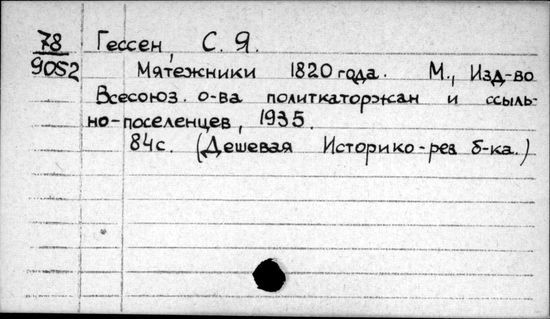 78 Гессен, С. Я.
9052 Мятежники 1820 года. М., Изд-во
Всесоюз. о-ва политкаторжан и ссыль-
но-поселенцев, 1935.
84с. (Дешевая Историко-рев б-ка.)